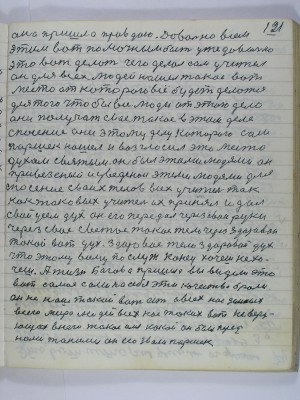 121
она пришла правдою. Довольно всем
этим вот помочным быт уже довольно
это вот делот чего делал сам учител
он для всех людей нашел такое вот
место от которого всё будет делотся
для того чтобы все люди от этого дело
они получат свое такое в этом деле
спосение они этому делу которого сам
паршек нашел и возгласил это место
духом святым. он был этими людями он
привезеный и уведеной этими людями для
спосение своих тилов всех учител так
как таковых учител их принял и дал
свой усем дух он его передал через свои руки
через свое светое такое тело через здоровя
такой вот дух. Здоровое тело здоровой дух
что этому всему послуж концу хочеш не хо-
чеш. А тизн богово пришло вы видели это
вот самое сами на себя это качество брали
он не наш такий вот ест а всех нас земных
всего мира людей всех нас таких вот неверя-
ющих в него такое имя какой он был пред
нами такими он его звали паршек